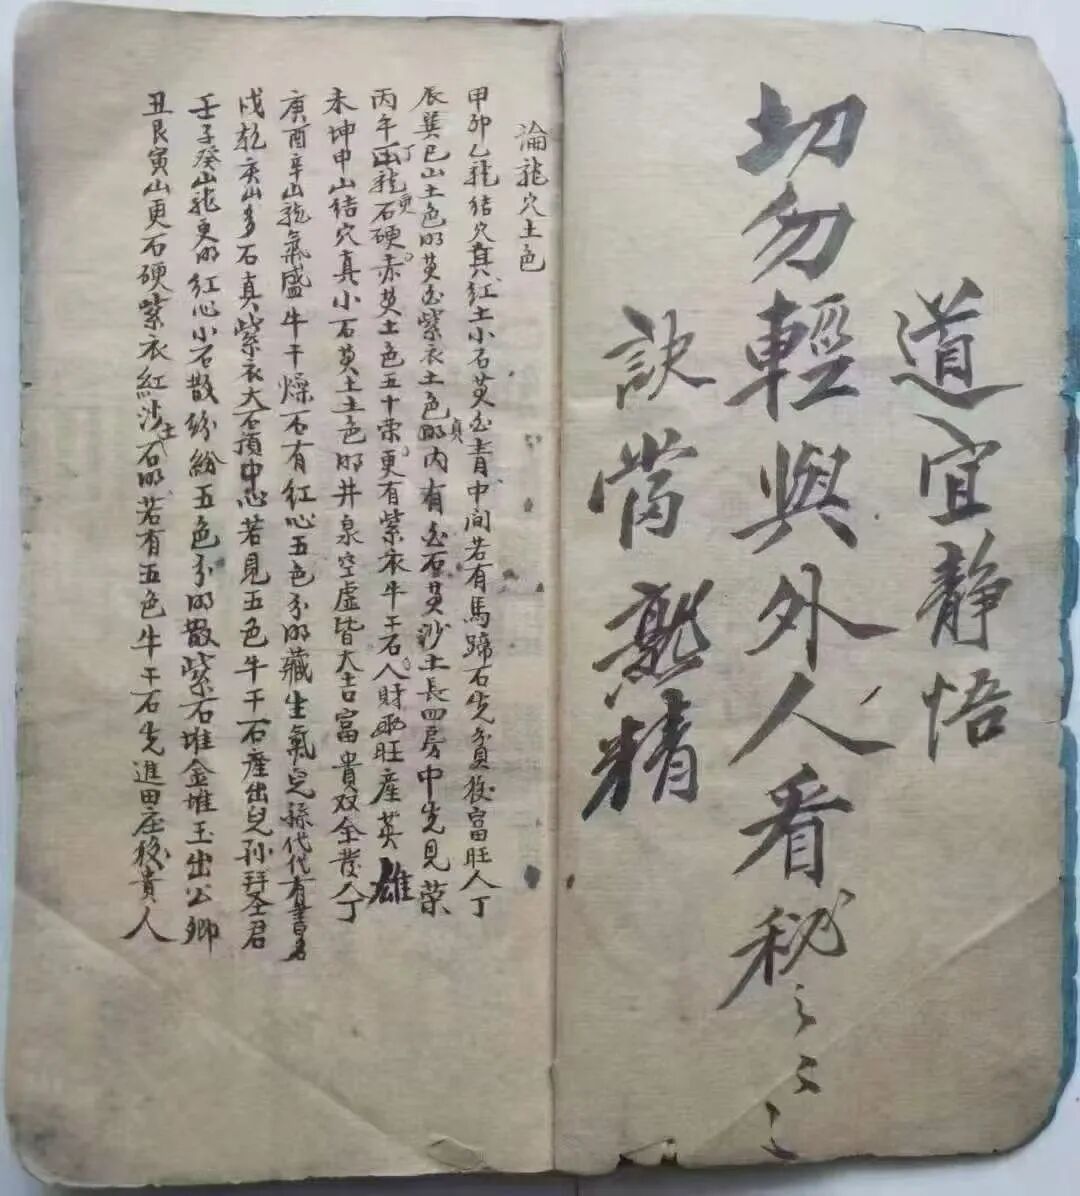 道宜静悟
切勿輕與外人看秘〻〻〻
訣當熟精
論龍穴土色
甲卯乙龍结穴真红土小石黄白青中间若有馬蹄石先貧後富旺人丁
辰巽巳山土色明黄白紫衣土色明真内有白石黄沙土長四房中先見荣
丙午丁龍石更硬赤黄土色五十荣更有紫衣牛干石人財两旺產英雄
未坤申山结穴真小石黄土土色明井泉空虚皆大吉富貴双全發人丁
庚酉辛山龍氣盛牛干燥石有红心五色分明藏生氣兒孫代代有書名
戌乾亥山多石真紫衣大石頂中心若見五色牛干石產出兒孙拜圣君
壬子癸山龍更明红心小石散纷纷五色分明散紫石堆金堆玉出公卿
丑艮寅山更石硬紫衣紅沙土石明若有五色牛干石先進田庄後貴人